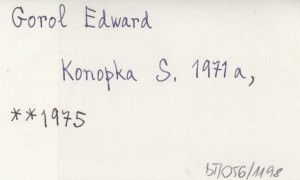 Gorol Edward
Konopka S. 1971a,
**1975
bT/056/1198